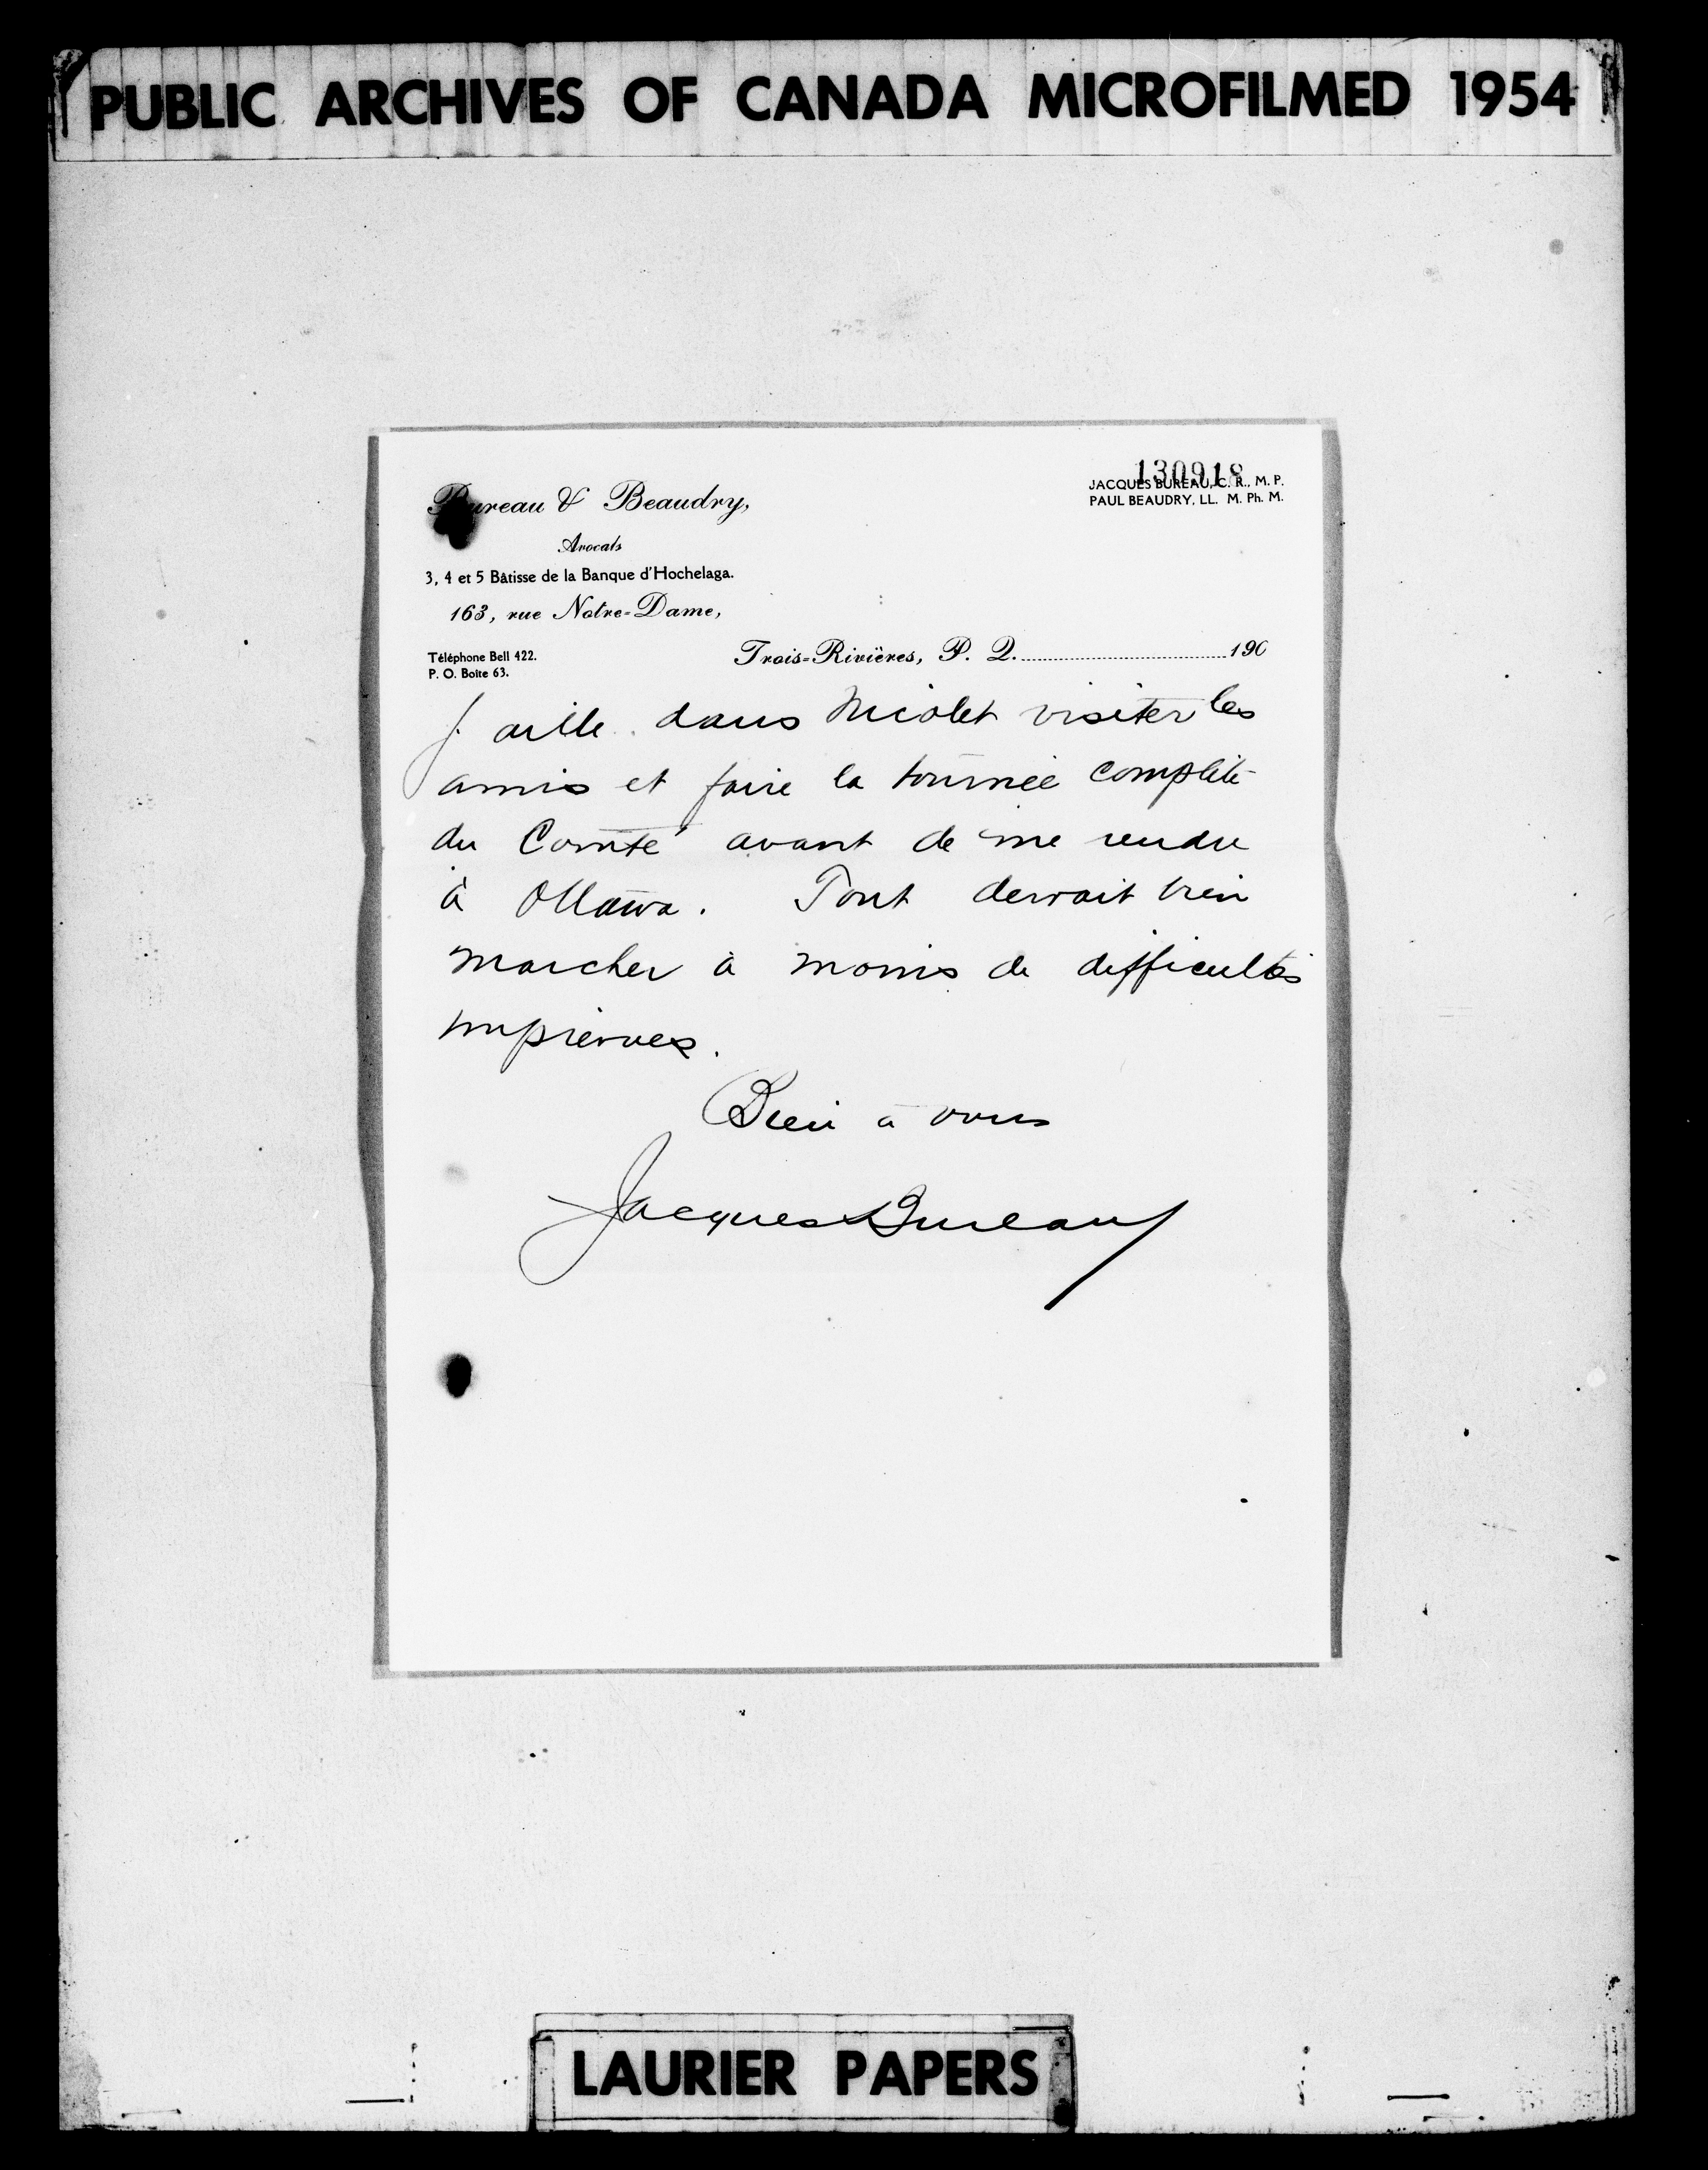 PUBLIC ARCHIVES OF CANADA MICROFILMED 1954
130918
JACQUES BUREAU, C. R., M. P.
PAUL BEAUDRY, LL. M. Ph. M.
Bureau & Beaudry,
Avocats
3, 4 et 5 Bâtisse de la Banque d'Hochelaga.
163, rue Notre-Dame,
Téléphone Bell 422.
P. O. Boite 63.
Trois-Rivières, P. Q. 190
j'aille dans Nicolet visiter les
amis et faire la tournée complète
du Comté avant de me rendre
à Ottawa. Tout devrait bien
marcher à moins de difficultés
imprévues.
Bien à vous
Jacques Bureau
LAURIER PAPERS